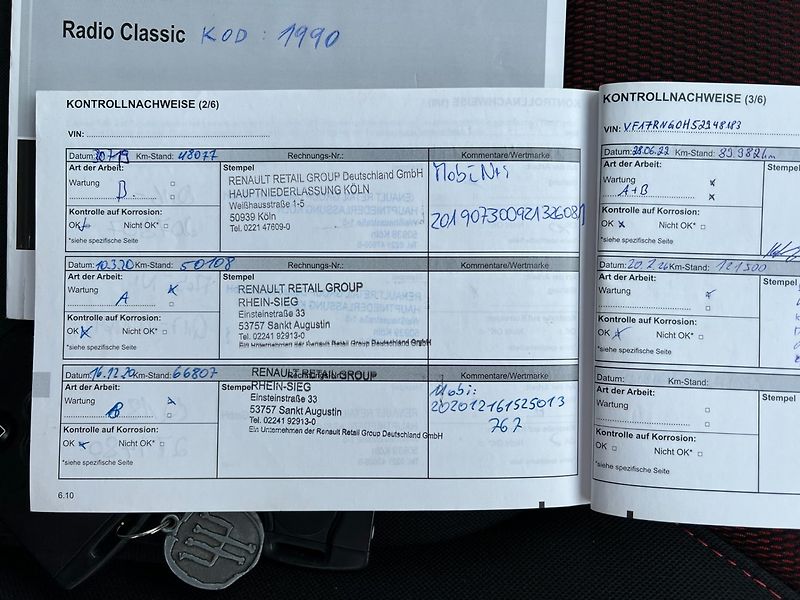 Radio Classic KOD : 1990
KONTROLLNACHWEISE (2/6)
VIN:
Datum: 30.7.19 Km-Stand: 48077 Rechnungs-Nr.: Kommentare/Wertmarke
Art der Arbeit:
Wartung
B.
Kontrolle auf Korrosion:
OK Nicht OK*
*siehe spezifische Seite
Stempel
RENAULT RETAIL GROUP Deutschland GmbH
HAUPTNIEDERLASSUNG KÖLN
Weißhausstraße 1-5
50939 Köln
Tel. 0221 47609-0
Datum: 10.3.20 Km-Stand: 50108 Rechnungs-Nr.: Kommentare/Wertmarke
Art der Arbeit:
Wartung
A
Kontrolle auf Korrosion:
OK Nicht OK*
*siehe spezifische Seite
Stempel
RENAULT RETAIL GROUP
RHEIN-SIEG
Einsteinstraße 33
53757 Sankt Augustin
Tel. 02241 92913-0
Ein Unternehmen der Renault Retail Group Deutschland GmbH
Datum: 16.12.20 Km-Stand: 66807 Kommentare/Wertmarke
Art der Arbeit:
Wartung
B
Kontrolle auf Korrosion:
OK Nicht OK*
*siehe spezifische Seite
Stempel
RENAULT RETAIL GROUP
RHEIN-SIEG
Einsteinstraße 33
53757 Sankt Augustin
Tel. 02241 92913-0
Ein Unternehmen der Renault Retail Group Deutschland GmbH
Mobi:
202012161525013
767
6.10
KONTROLLNACHWEISE (3/6)
VIN:
Datum: 28.06.22 Km-Stand: 89.982km
Art der Arbeit:
Wartung
A+B
Kontrolle auf Korrosion:
OK Nicht OK*
*siehe spezifische Seite
Stempel
Datum: Km-Stand: 121500
Art der Arbeit:
Wartung
Kontrolle auf Korrosion:
OK Nicht OK*
*siehe spezifische Seite
Stempel
Datum: Km-Stand:
Art der Arbeit:
Wartung
Kontrolle auf Korrosion:
OK Nicht OK*
*siehe spezifische Seite
Stempel